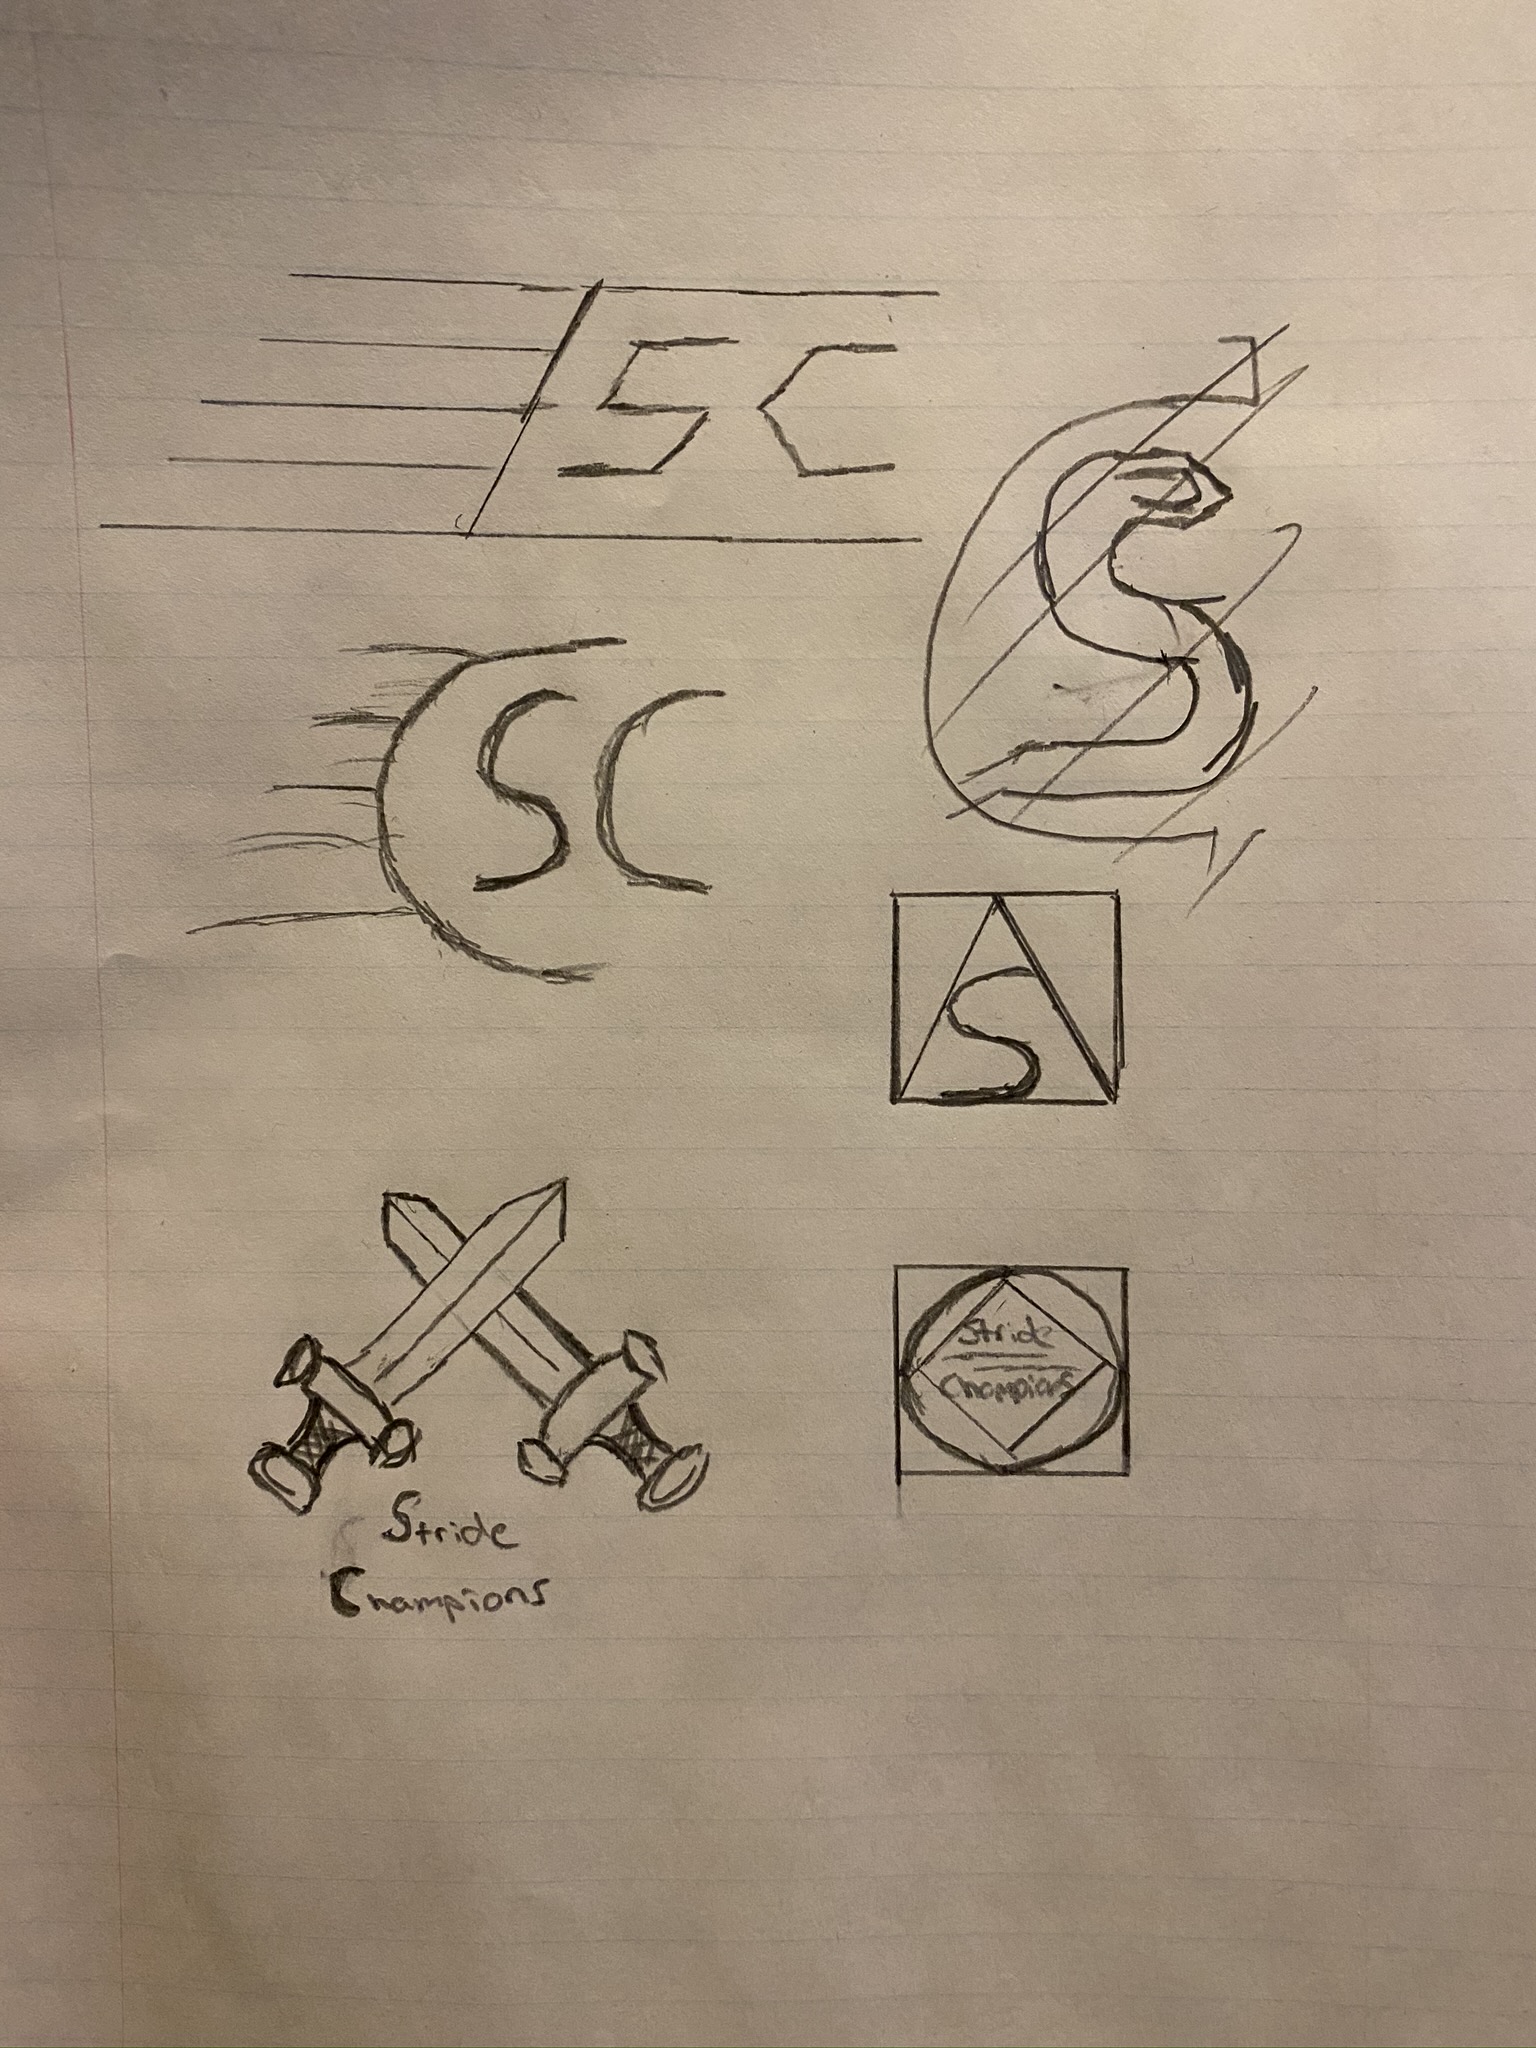 SC
SC
S
Stride
Champions
Stride
Champions